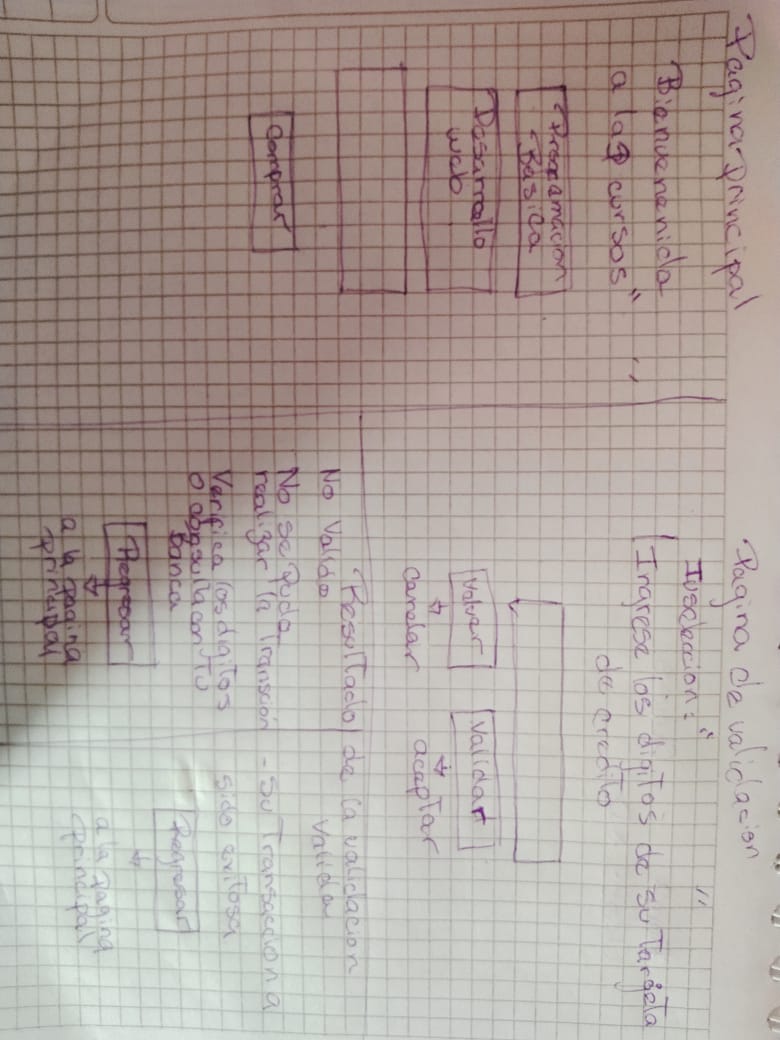 Pagina Principal
Bienvenenida
a las cursos" "
Programacion
Basica
Desarrollo
web
Comprar
Pagina de validacion
Tuseleccion: " "
Ingrese los digitos de su Targeta
de credito
Volver
Canelar
Validar
acaptar
Resultado de la validacion
No Valido
No se Pudo
realizar la Transsion
Verifica los digitos
o
con Tu
banca
Regresar
a la pagina
principal
Valida
- Su Transaccion a
sido exitosa
Regresar
a la Pagina
principall